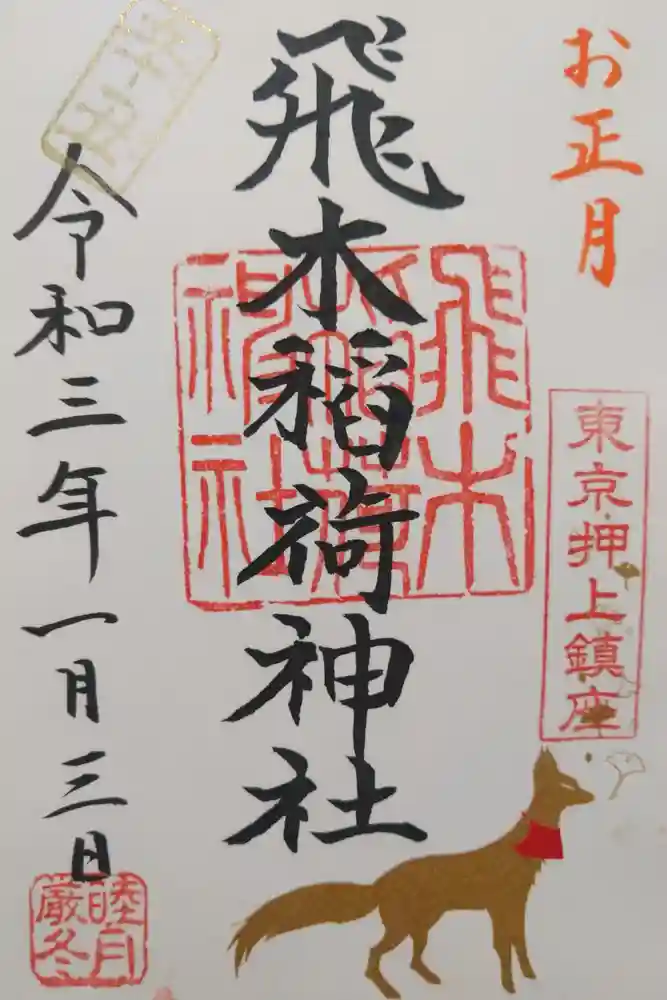 お正月
東京押上鎮座
飛木稲荷神社
飛木稲荷神社
令和三年一月三日
辛丑
睦月
厳冬